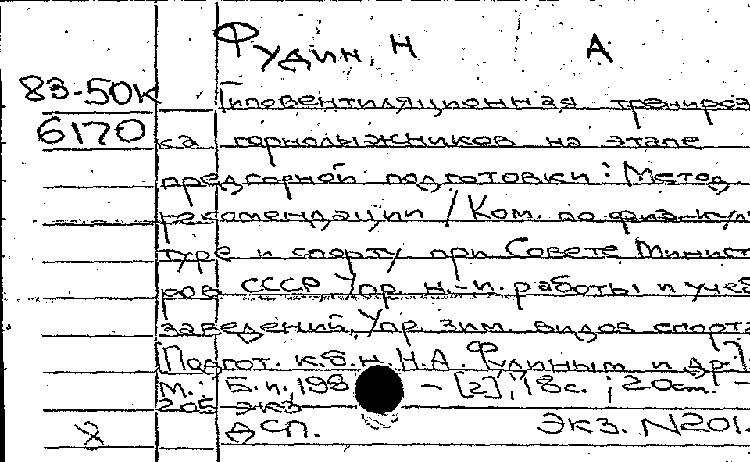 Фудин, Н А
83-50К Гиповентиляционная трениров
6170 ка горнолыжников на этапе
предсорной подготовки: Метод.
рекомендации / Ком. по физ. куль
туре и спорту при Совете Минист
ров СССР Упр. н.-и. работы и учеб
заведений, Упр зим. видов спорта
[Подгот. к.б.н. Н.А. Фудиным и др.]
М.: Б.и., 198 - [2], 18 с.; 20 см. -
205 экз
ДСП. Экз. N201.